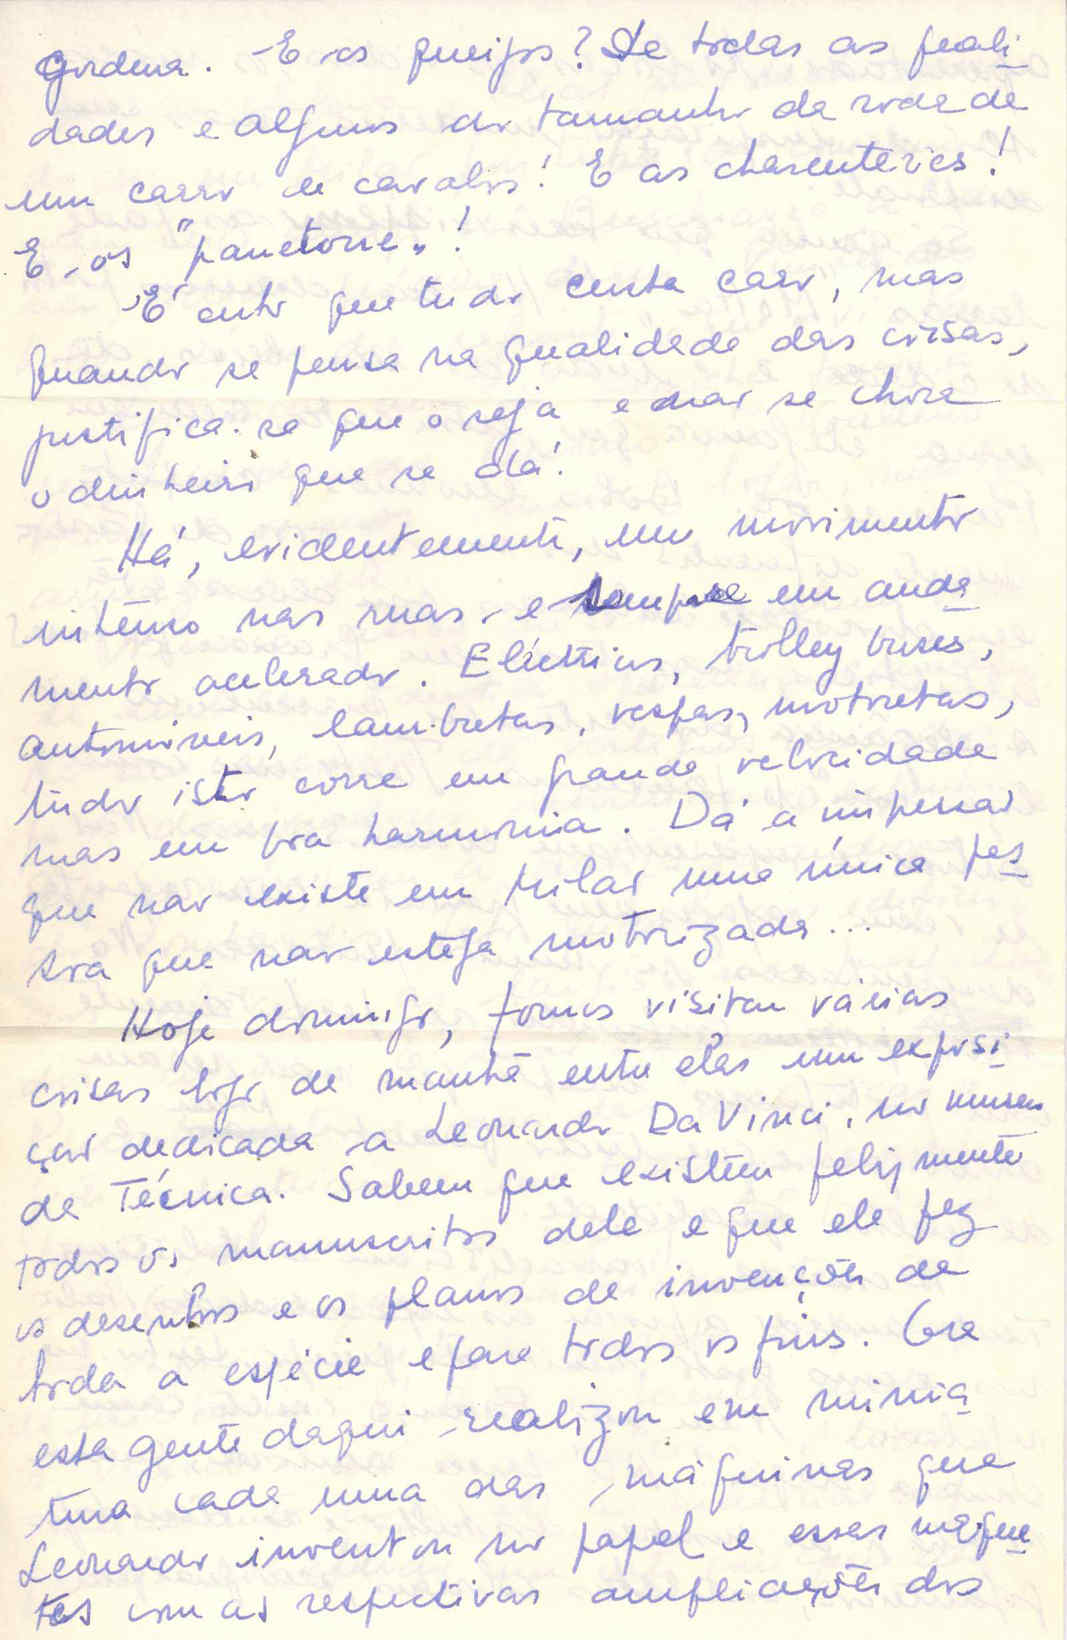 gordura. - E os queijos? De todas as quali
dades e alguns do tamanho da roda de
um carro de cavalos! E as charcuteries!
E os "panetone"!
É certo que tudo custa caro, mas
quando se pensa na qualidade das coisas,
justifica-se que o seja e não se chora
o dinheiro que se dá!
Há, evidentemente, um movimento
intenso nas ruas e sempre em anda
mento acelerado. Eléctricos, trolley buses,
automóveis, lambretas, vespas, motoretas,
tudo isto corre em grande velocidade
mas em boa harmonia. Dá a impressão
que não existe em Milão uma única pes
soa que não esteja motorizada...
Hoje domingo, fomos visitar várias
coisas logo de manhã entre elas uma exposi
ção dedicada a Leonardo Da Vinci, no museu
da Técnica. Sabem que existem felizmente
todos os manuscritos dele e que ele fez
os desenhos e os planos de invenções de
toda a espécie e para todos os fins. Ora
esta gente daqui realizou em minia
tura cada uma das máquinas que
Leonardo inventou no papel e essas maque
tes com as respectivas ampliações dos